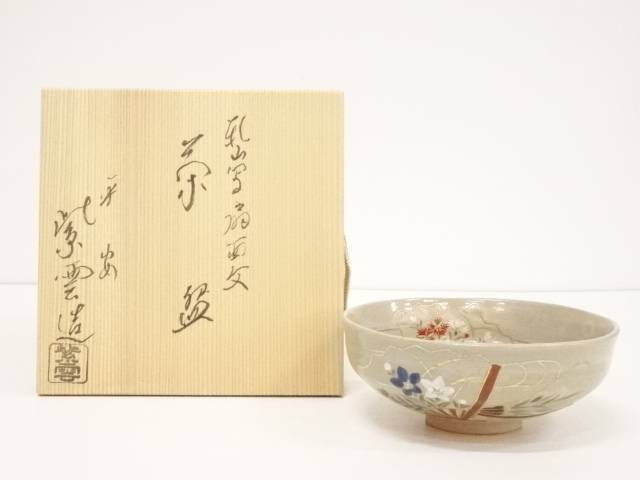 乾山写扇面文
茶盌
平安
紫雲造
紫雲